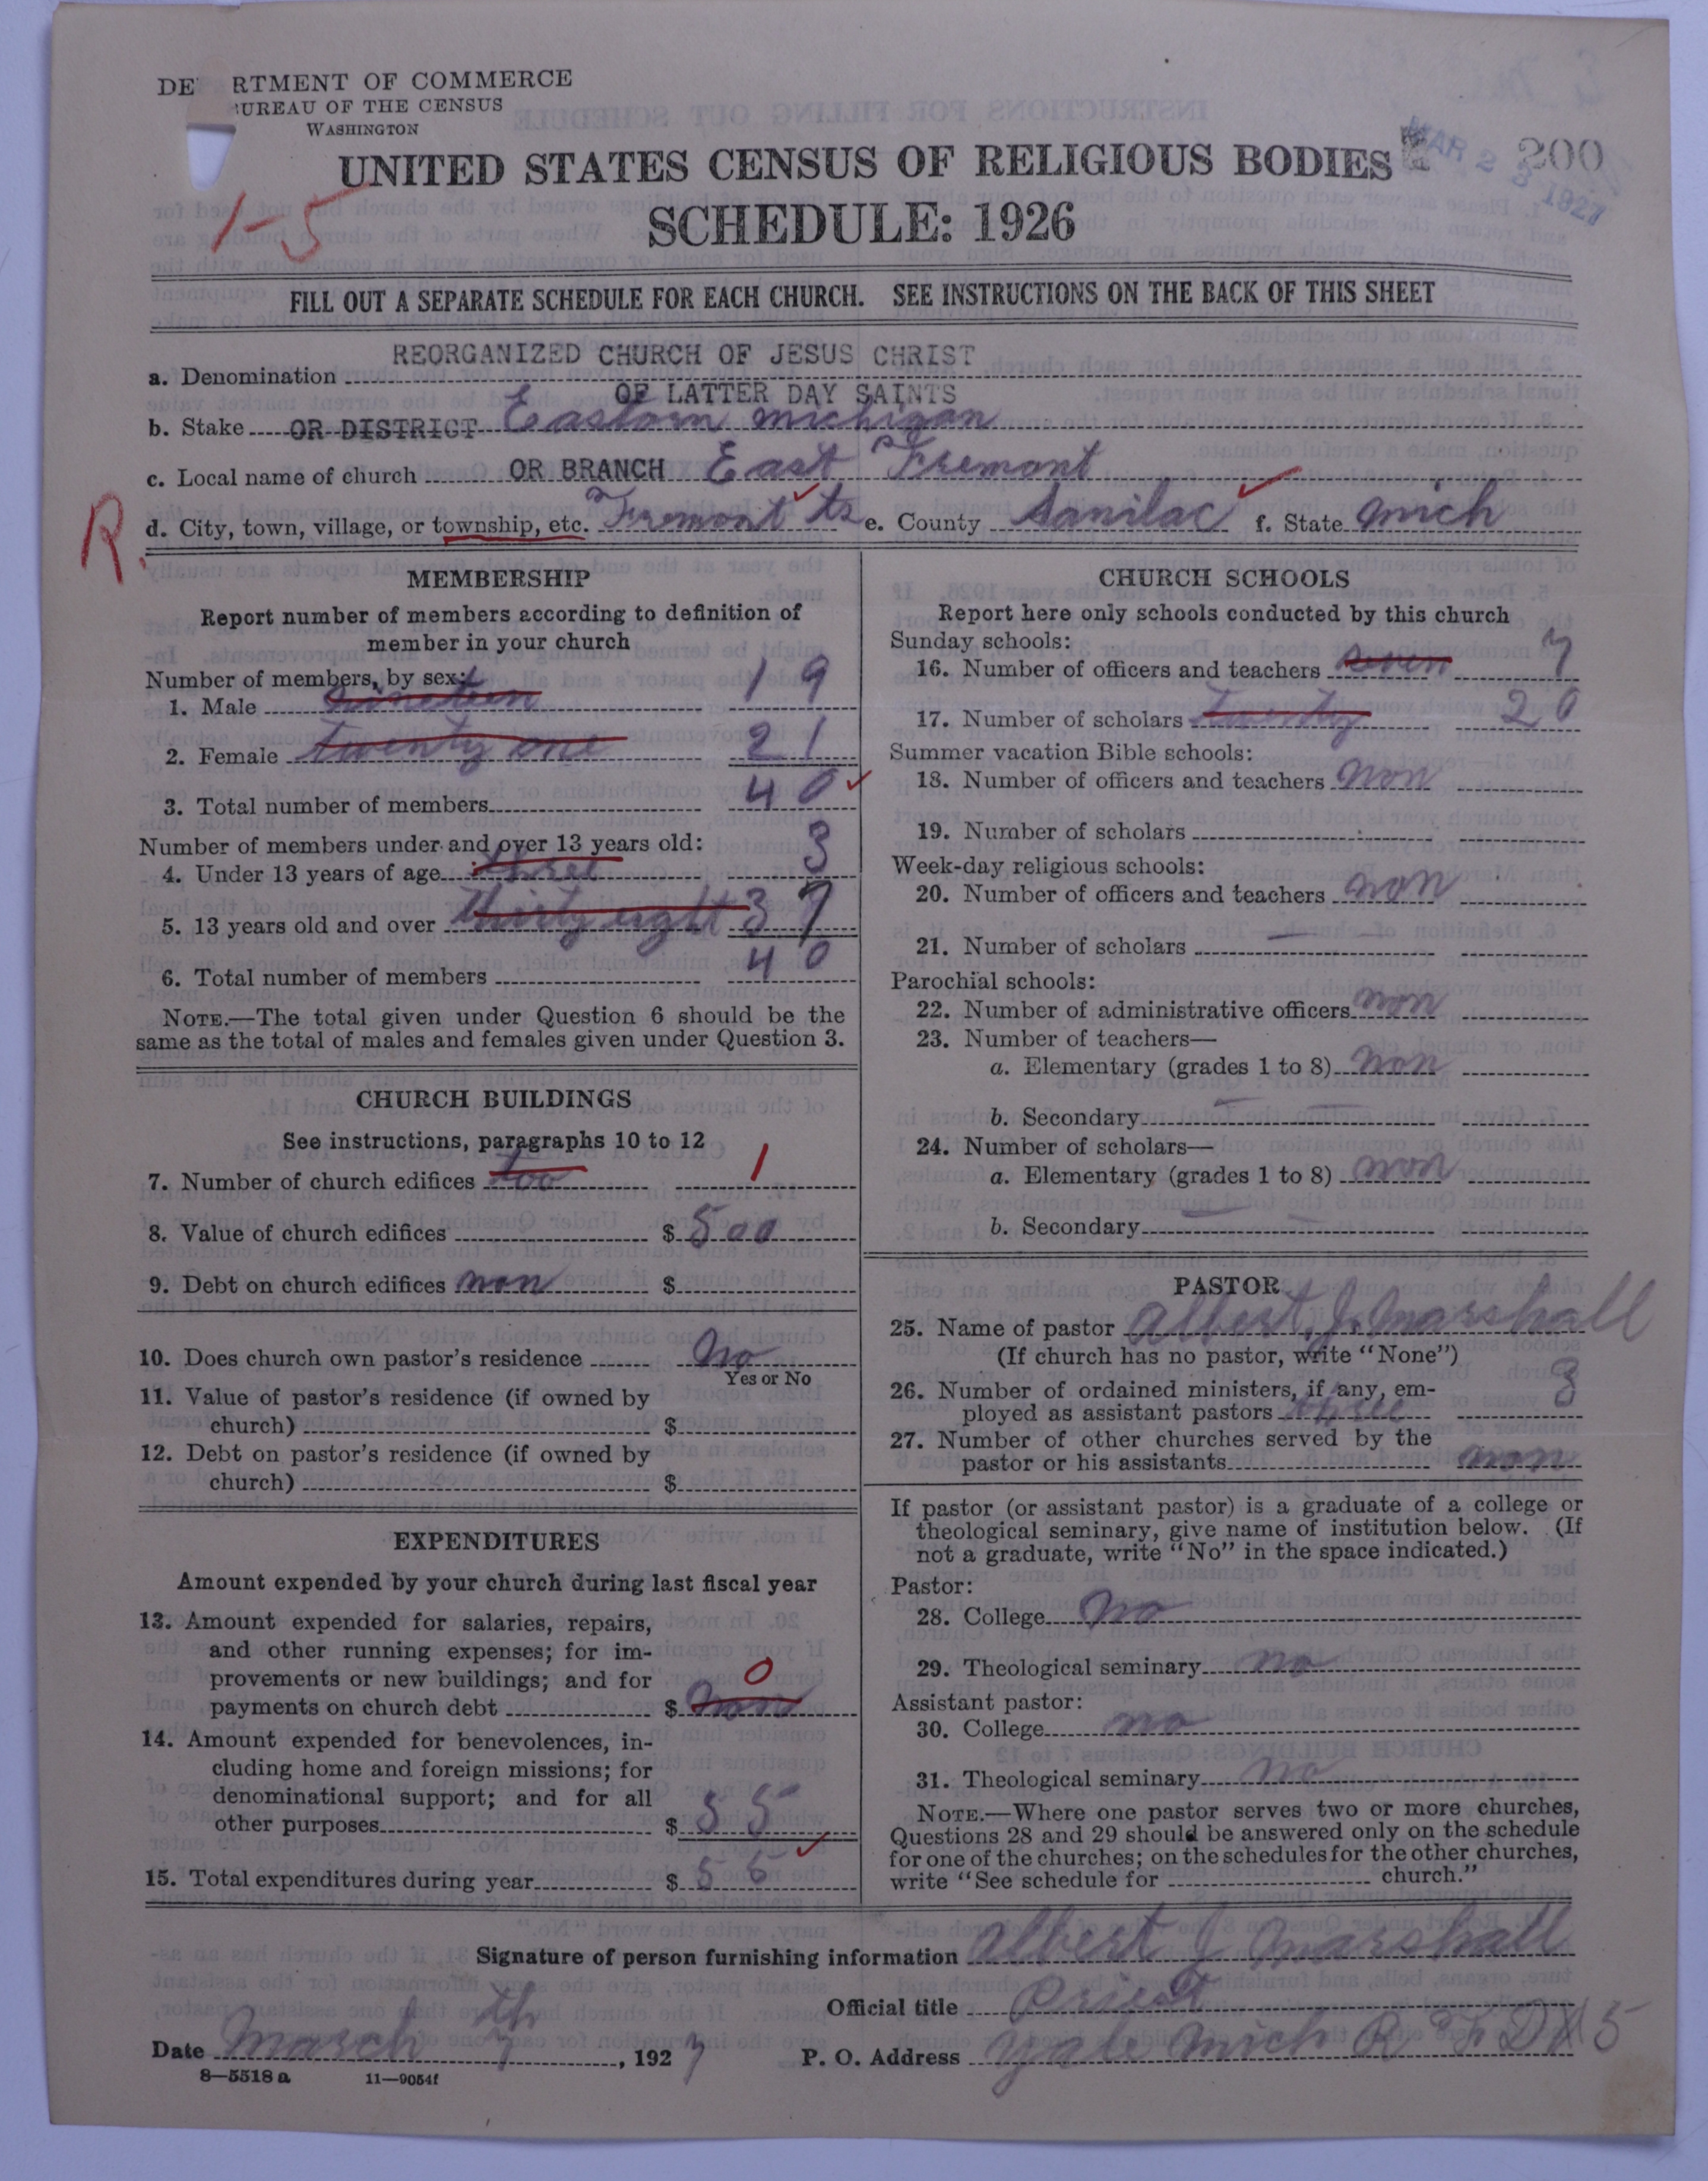 DE RTMENT OF COMMERCE
UREAU OF THE CENSUS
WASHINGTON
UNITED STATES CENSUS OF RELIGIOUS BODIES
200
MAR 23 1927
SCHEDULE: 1926
1-5
FILL OUT A SEPARATE SCHEDULE FOR EACH CHURCH. SEE INSTRUCTIONS ON THE BACK OF THIS SHEET
REORGANIZED CHURCH OF JESUS CHRIST
a. Denomination
OF LATTER DAY SAINTS
b. Stake OR DISTRICT Eastern michigan
c. Local name of church OR BRANCH East Fremont
R. d. City, town, village, or township, etc. Fremont ts e. County Sanilac f. State mich
MEMBERSHIP
Report number of members according to definition of
member in your church
Number of members, by sex:
1. Male nineteen 19
2. Female twenty one 21
3. Total number of members 40
Number of members under and over 13 years old:
4. Under 13 years of age three 3
5. 13 years old and over thirty eight 37
6. Total number of members 40
NOTE.—The total given under Question 6 should be the
same as the total of males and females given under Question 3.
CHURCH BUILDINGS
See instructions, paragraphs 10 to 12
7. Number of church edifices too 1
8. Value of church edifices $ 500
9. Debt on church edifices non $
10. Does church own pastor's residence No
Yes or No
11. Value of pastor's residence (if owned by
church) $
12. Debt on pastor's residence (if owned by
church) $
EXPENDITURES
Amount expended by your church during last fiscal year
13. Amount expended for salaries, repairs,
and other running expenses; for im-
provements or new buildings; and for
payments on church debt $ non 0
14. Amount expended for benevolences, in-
cluding home and foreign missions; for
denominational support; and for all
other purposes $ 55
15. Total expenditures during year $ 55
CHURCH SCHOOLS
Report here only schools conducted by this church
Sunday schools:
16. Number of officers and teachers seven 7
17. Number of scholars twenty 20
Summer vacation Bible schools:
18. Number of officers and teachers non
19. Number of scholars
Week-day religious schools:
20. Number of officers and teachers non
21. Number of scholars
Parochial schools:
22. Number of administrative officers non
23. Number of teachers—
a. Elementary (grades 1 to 8) non
b. Secondary
24. Number of scholars—
a. Elementary (grades 1 to 8) non
b. Secondary
PASTOR
25. Name of pastor Albert J. Marshall
(If church has no pastor, write "None")
26. Number of ordained ministers, if any, em-
ployed as assistant pastors three 3
27. Number of other churches served by the
pastor or his assistants non
If pastor (or assistant pastor) is a graduate of a college or
theological seminary, give name of institution below. (If
not a graduate, write "No" in the space indicated.)
Pastor:
28. College no
29. Theological seminary no
Assistant pastor:
30. College no
31. Theological seminary no
NOTE.—Where one pastor serves two or more churches,
Questions 28 and 29 should be answered only on the schedule
for one of the churches; on the schedules for the other churches,
write "See schedule for church."
Signature of person furnishing information Albert J Marshall
Official title Priest
Date March 7th, 1927 P. O. Address Yale Mich R F D # 5
8—5518 a 11—9054f